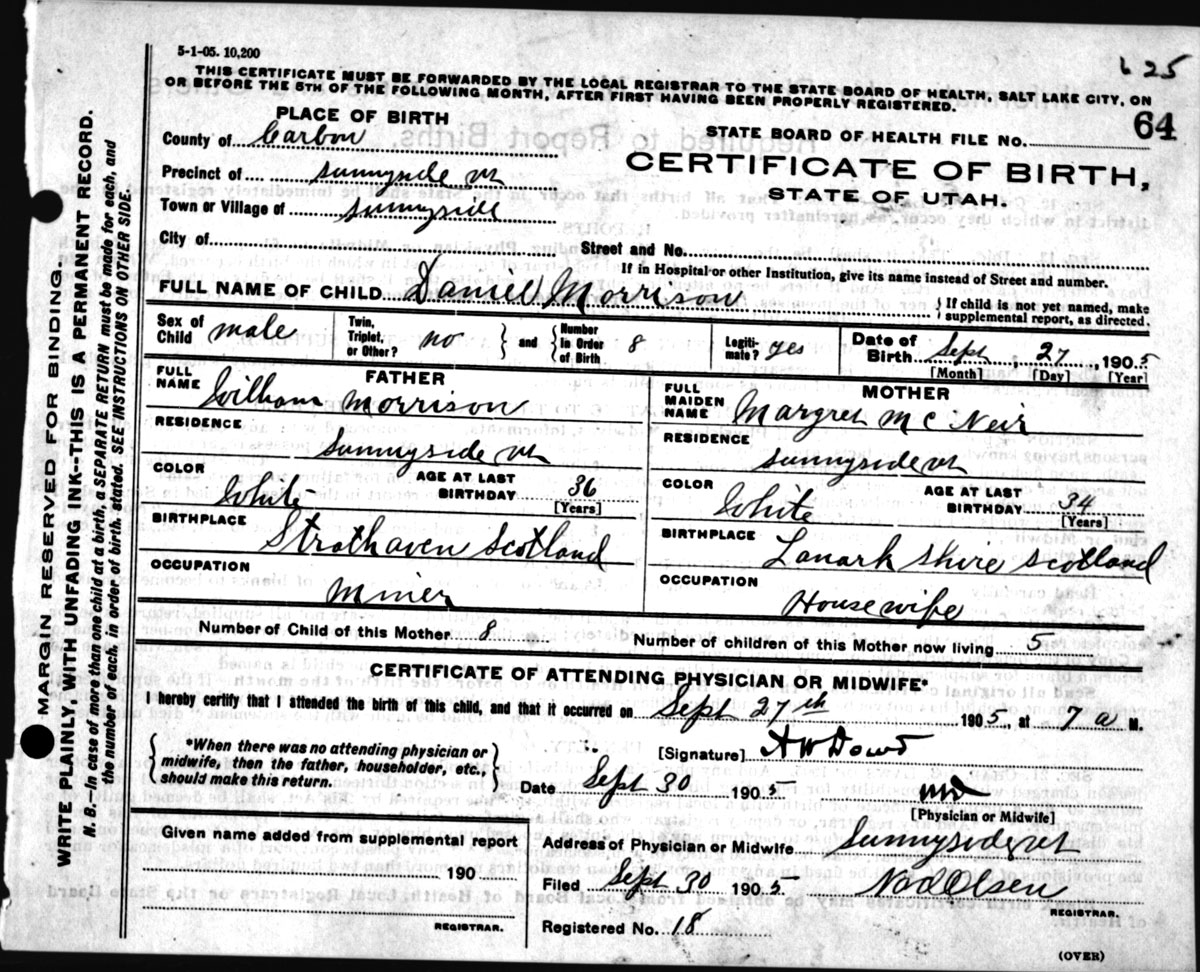 5-1-05. 10,200
625
THIS CERTIFICATE MUST BE FORWARDED BY THE LOCAL REGISTRAR TO THE STATE BOARD OF HEALTH, SALT LAKE CITY, ON
OR BEFORE THE 5TH OF THE FOLLOWING MONTH, AFTER FIRST HAVING BEEN PROPERLY REGISTERED.
64
PLACE OF BIRTH
STATE BOARD OF HEALTH FILE No.
County of Carbon
CERTIFICATE OF BIRTH,
Precinct of Sunnyside Ut
STATE OF UTAH.
Town or Village of Sunnyside
City of Street and No.
If in Hospital or other Institution, give its name instead of Street and number.
FULL NAME OF CHILD Daniel Morrison { If child is not yet named, make supplemental report, as directed.
Sex of Child male Twin, Triplet, or Other? no } and { Number in Order of Birth 8 Legitimate? yes Date of Birth Sept 27, 1905
[Month] [Day] [Year]
FATHER MOTHER
FULL NAME William Morrison FULL MAIDEN NAME Margret McNeir
RESIDENCE RESIDENCE
Sunnyside Ut Sunnyside Ut
COLOR White AGE AT LAST BIRTHDAY 36 COLOR White AGE AT LAST BIRTHDAY 34
[Years] [Years]
BIRTHPLACE Strathaven Scotland BIRTHPLACE Lanark Shire Scotland
OCCUPATION OCCUPATION
Miner Housewife
Number of Child of this Mother 8 Number of children of this Mother now living 5
CERTIFICATE OF ATTENDING PHYSICIAN OR MIDWIFE*
I hereby certify that I attended the birth of this child, and that it occurred on Sept 27th 1905, at 7 a M.
{ *When there was no attending physician or midwife, then the father, householder, etc., should make this return. }
[Signature] A W Dowd
Date Sept 30 1905 MD
[Physician or Midwife]
Given name added from a supplemental report
190
REGISTRAR.
Address of Physician or Midwife Sunnyside Ut
Filed Sept 30 1905
Olsen
REGISTRAR.
Registered No. 18
(OVER)
MARGIN RESERVED FOR BINDING.
WRITE PLAINLY, WITH UNFADING INK--THIS IS A PERMANENT RECORD.
N. B.—In case of more than one child at a birth, a SEPARATE RETURN must be made for each, and
the number of each, in order of birth, stated. SEE INSTRUCTIONS ON OTHER SIDE.